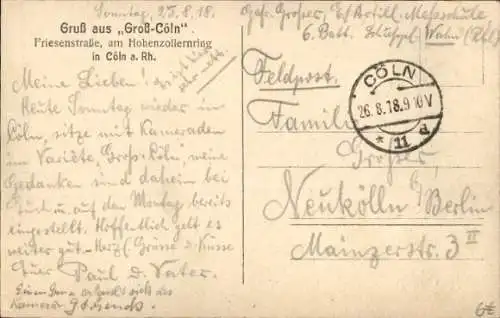 Sonntag, 25.8.18.
Gruß aus „Groß-Cöln"
Friesenstraße, am Hohenzollernring
in Cöln a. Rh.
sehr nett.
Meine Lieben!
Heute Sonntag wieder in
Cöln, sitze mit Kameraden
im Variété, Gross-Cöln, meine
Gedanken sind daheim bei
Euch u. auf den Montag bereits
eingestellt. Hoffentlich geht es
weiter gut. Herzl. Grüsse u. Küsse
Euer Paul u. Vater.
sich des
Kamerad
Gefr. Grosser, Artill.-Messschule
6. Batt. Wahn (Rhl)
Feldpost.
CÖLN
26.8.18.9-10V
* 11 d
Familie
Grosser,
Neukölln b/ Berlin
Mainzerstr. 3 II
6€